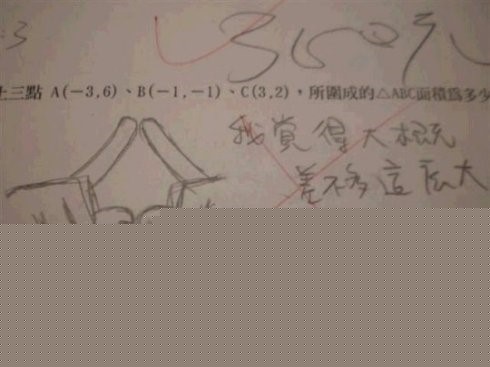 :3
上三點 A(-3,6)、B(-1,-1)、C(3,2),所圍成的△ABC面積為多少
我覺得大概
差不多這麼大